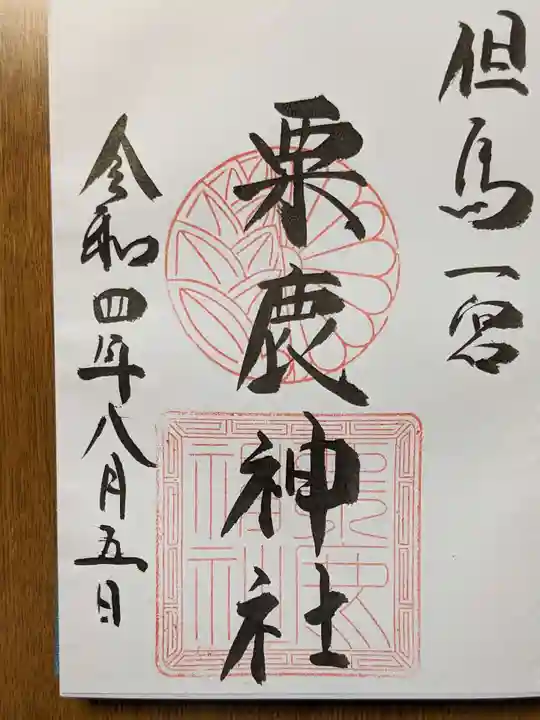 但馬一宮
粟鹿神社
令和四年八月五日
粟鹿神社